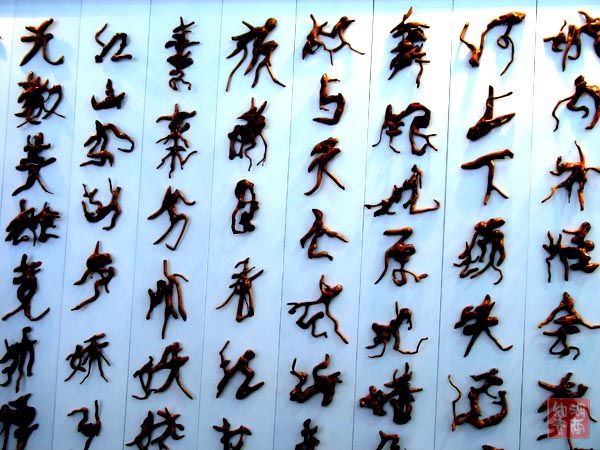 城内外惟余莽
河上下顿失滔
舞银蛇原驰蜡
欲与天公试比
须晴日看红装
素裹分外妖娆
江山如此多娇引
无數英雄竞折腰